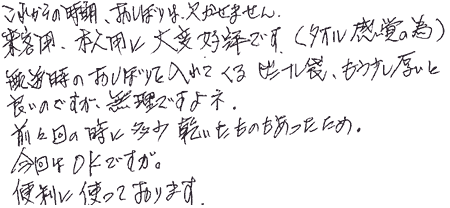 これからの時期、おしぼりは、欠かせません。
来客用、本人用に大変好評です。(タオル感覚の為)
配送時のおしぼりを入れてくるビニール袋、もう少し厚いと
良いのですが、無理ですよネ。
前々回の時に多少乾いたものもあったため。
今回はOKですが。
便利に使っております。